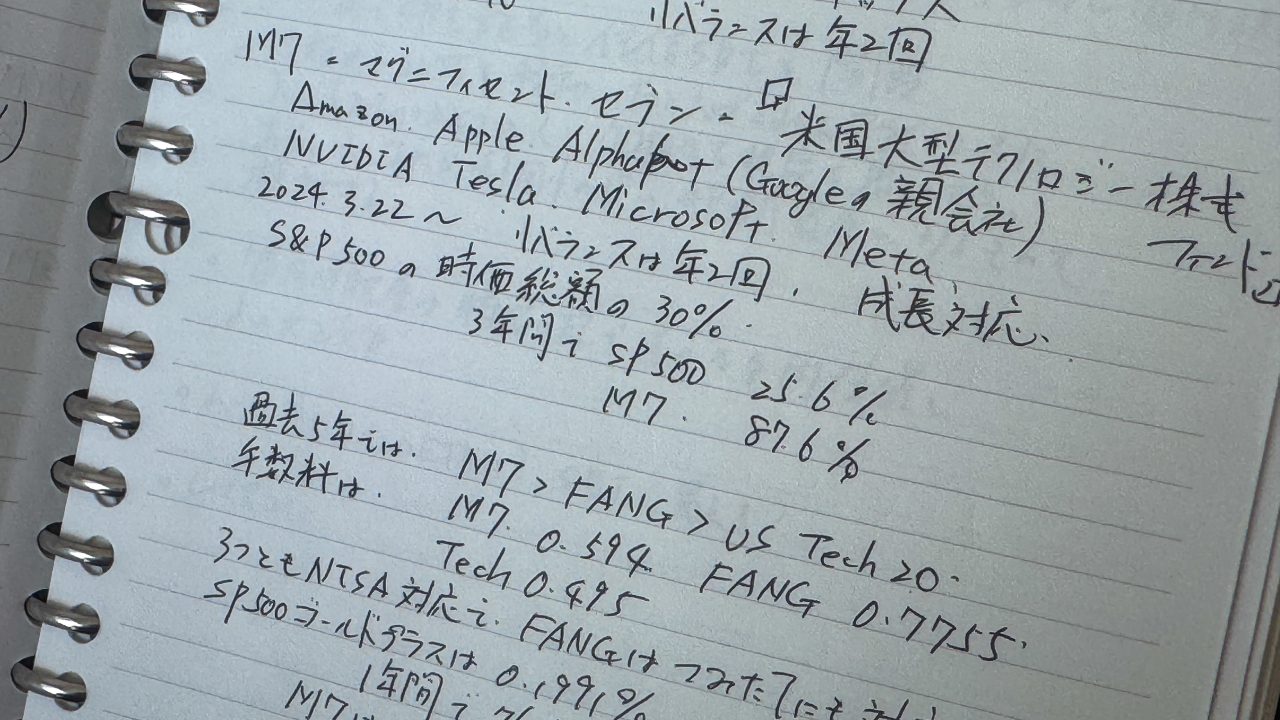 リバランスは年2回
M7 = マグニフィセント・セブン =「米国大型テクノロジー株式ファンド」
Amazon. Apple. Alphabet (Googleの親会社)
NVIDIA Tesla. Microsoft. Meta
2024.3.22~ リバランスは年2回. 成長対応.
S&P500の時価総額の30%.
3年間で SP500 25.6%
M7. 87.6%
過去5年では. M7 > FANG > US Tech 20.
手数料は. M7. 0.594. FANG 0.7755.
Tech 0.495
3つともNISA対応で. FANGはつみたてにも
SP500ゴールドプラスは 0.1991%
1年間で
M7は